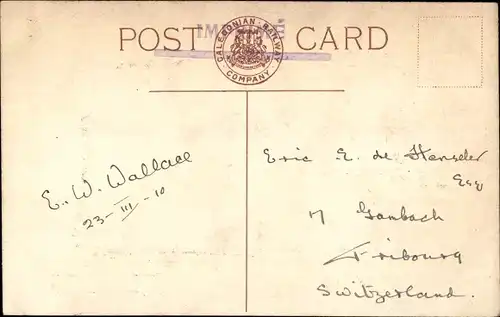 POST CARD
CALEDONIAN RAILWAY COMPANY
E. W. Wallace
23-III-10
Eric E. de
Esq
17 Gambach
Fribourg
Switzerland.